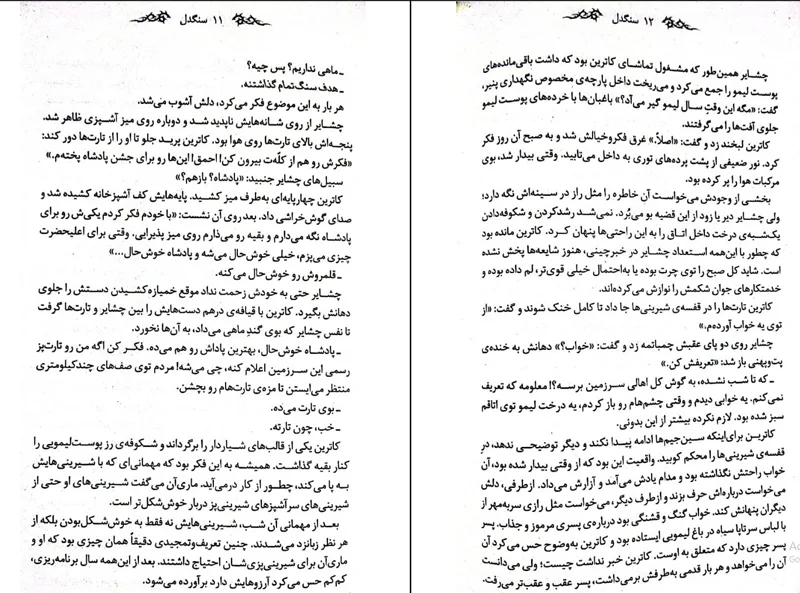 ۱۱ سنگدل
ـ ماهی نداریم؟ پس چیه؟
ـ هدف سنگ‌تمام گذاشتنه.
هر بار به این موضوع فکر می‌کرد، دلش آشوب می‌شد.
چشایر از روی شانه‌هایش ناپدید شد و دوباره روی میز آشپزی ظاهر شد.
پنجه‌اش بالای تارت‌ها روی هوا بود. کاترین پرید جلو تا او را از تارت‌ها دور کند:
«فکرش رو هم از کله‌ت بیرون کن! احمق! این‌ها رو برای جشن پادشاه پخته‌م.»
سبیل‌های چشایر جنبید: «پادشاه؟ بازهم؟»
کاترین چهارپایه‌ای به‌طرف میز کشید. پایه‌هایش کف آشپزخانه کشیده شد و
صدای گوش‌خراشی داد. بعد روی آن نشست: «با خودم فکر کردم یکی‌ش رو برای
پادشاه نگه می‌دارم و بقیه رو می‌ذارم روی میز پذیرایی. وقتی برای اعلیحضرت
چیزی می‌پزم، خیلی خوش‌حال می‌شه و پادشاه خوش‌حال...»
ـ قلمروش رو خوش‌حال می‌کنه.
چشایر حتی به خودش زحمت نداد موقع خمیازه‌کشیدن دستش را جلوی
دهانش بگیرد. کاترین با قیافه‌ی درهم دست‌هایش را بین چشایر و تارت‌ها گرفت
تا نفس چشایر که بوی گند ماهی می‌داد، به آن‌ها نخورد.
ـ پادشاه خوش‌حال، بهترین پاداش رو هم می‌ده. فکر کن اگه من رو تارت‌پز
رسمی این سرزمین اعلام کنه، چی می‌شه! مردم توی صف‌های چندکیلومتری
منتظر می‌ایستن تا مزه‌ی تارت‌هام رو بچشن.
ـ بوی تارت می‌ده.
ـ خب، چون تارته.
کاترین یکی از قالب‌های شیاردار را برگرداند و شکوفه‌ی رز پوست‌لیمویی را
کنار بقیه گذاشت. همیشه به این فکر بود که مهمانی‌ای که با شیرینی‌هایش
به پا می‌کند، چطور از کار درمی‌آید. ماری‌آن می‌گفت شیرینی‌های او حتی از
شیرینی‌های سرآشپزهای شیرینی‌پز دربار خوش‌شکل‌تر است.
بعد از مهمانی آن شب، شیرینی‌هایش نه فقط به خوش‌شکل‌بودن بلکه از
هر نظر زبانزد می‌شدند. چنین تعریف‌وتمجیدی دقیقاً همان چیزی بود که او و
ماری‌آن برای شیرینی‌پزی‌شان احتیاج داشتند. بعد از این‌همه سال برنامه‌ریزی،
کم‌کم حس می‌کرد آرزوهایش دارد برآورده می‌شود.
۱۲ سنگدل
چشایر همین‌طور که مشغول تماشای کاترین بود که داشت باقی‌مانده‌های
پوست لیمو را جمع می‌کرد و می‌ریخت داخل پارچه‌ی مخصوص نگهداری پنیر،
گفت: «مگه این وقتِ سال لیمو گیر می‌آد؟» باغبان‌ها با خرده‌های پوست لیمو
جلوی آفت‌ها را می‌گرفتند.
کاترین لبخند زد و گفت: «اصلاً.» غرق فکروخیالش شد و به صبح آن روز فکر
کرد. نور ضعیفی از پشت پرده‌های توری به داخل می‌تابید. وقتی بیدار شد، بوی
مرکبات هوا را پر کرده بود.
بخشی از وجودش می‌خواست آن خاطره را مثل راز در سینه‌اش نگه دارد؛
ولی چشایر دیر یا زود از این قضیه بو می‌بُرد. نمی‌شد رشدکردن و شکوفه‌دادن
یک‌شبه‌ی درخت داخل اتاق را به این راحتی‌ها پنهان کرد. کاترین مانده بود
که چطور با این‌همه استعداد چشایر در خبرچینی، هنوز شایعه‌ها پخش نشده
است. شاید کل صبح را توی چرت بوده یا به‌احتمال خیلی قوی‌تر، لم داده بوده و
خدمتکارهای جوان شکمش را نوازش می‌کرده‌اند.
کاترین تارت‌ها را در قفسه‌ی شیرینی‌ها جا داد تا کامل خنک شوند و گفت: «از
توی یه خواب آورده‌م.»
چشایر روی دو پای عقبش چمباتمه زد و گفت: «خواب؟» دهانش به خنده‌ی
پت‌وپهنی باز شد: «تعریفش کن.»
ـ که تا شب نشده، به گوش کل اهالی سرزمین برسه؟! معلومه که تعریف
نمی‌کنم. یه خوابی دیدم و وقتی چشم‌هام رو باز کردم، یه درخت لیمو توی اتاقم
سبز شده بود. لازم نکرده بیشتر از این بدونی.
کاترین برای‌اینکه سین‌جیم‌ها ادامه پیدا نکند و دیگر توضیحی ندهد، درِ
قفسه‌ی شیرینی‌ها را محکم کوبید. واقعیت این بود که از وقتی بیدار شده بود، آن
خواب راحتش نگذاشته بود و مدام یادش می‌آمد و آزارش می‌داد. ازطرفی، دلش
می‌خواست درباره‌اش حرف بزند و ازطرف دیگر، می‌خواست مثل رازی سربه‌مهر از
دیگران پنهانش کند. خواب گنگ و قشنگی بود درباره‌ی پسری مرموز و جذاب. پسر
با لباس سرتاپا سیاه در باغ لیمویی ایستاده بود و کاترین به‌وضوح حس می‌کرد آن
پسر چیزی دارد که متعلق به اوست. کاترین خبر نداشت چیست؛ ولی می‌دانست
آن را می‌خواهد و هر بار قدمی به‌طرفش برمی‌داشت، پسر عقب و عقب‌تر می‌رفت.